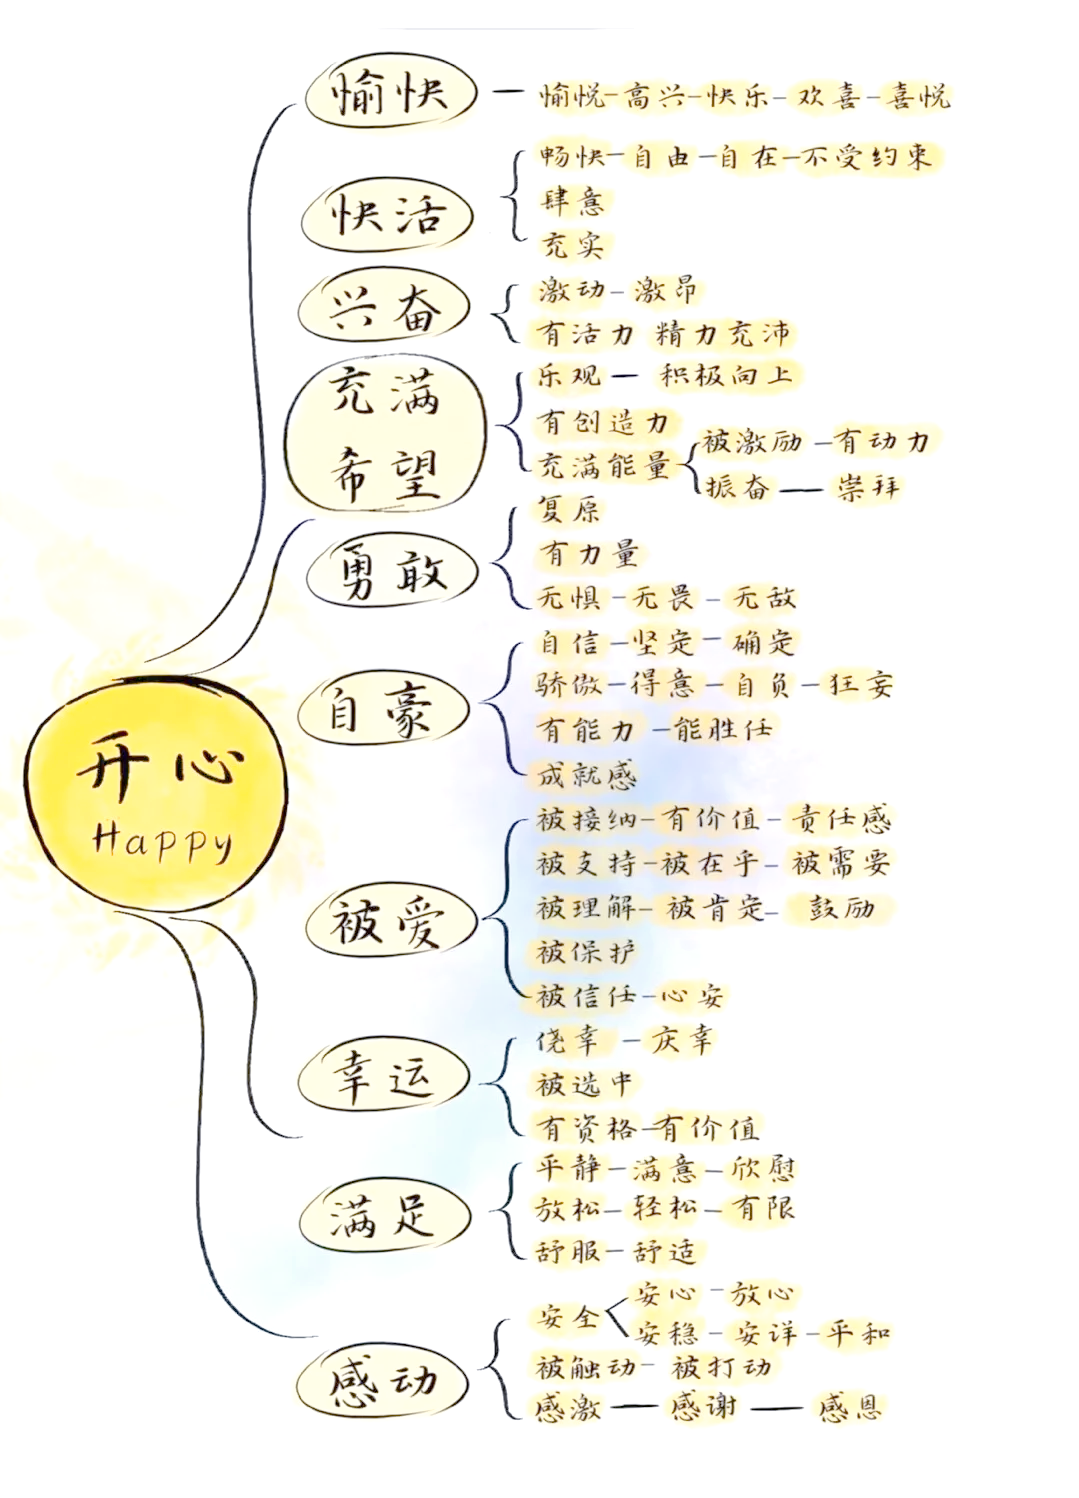 愉快 — 愉悦-高兴-快乐-欢喜-喜悦
快活
畅快-自由-自在-不受约束
肆意
充实
兴奋
激动-激昂
有活力 精力充沛
充满
希望
乐观 — 积极向上
有创造力
充满能量
被激励-有动力
振奋 — 崇拜
勇敢
复原
有力量
无惧-无畏-无敌
开心
Happy
自豪
自信-坚定-确定
骄傲-得意-自负-狂妄
有能力-能胜任
成就感
被爱
被接纳-有价值-责任感
被支持-被在乎-被需要
被理解-被肯定-鼓励
被保护
被信任-心安
幸运
侥幸-庆幸
被选中
有资格-有价值
满足
平静-满意-欣慰
放松-轻松-有限
舒服-舒适
感动
安全
安心-放心
安稳-安详-平和
被触动-被打动
感激 — 感谢 — 感恩